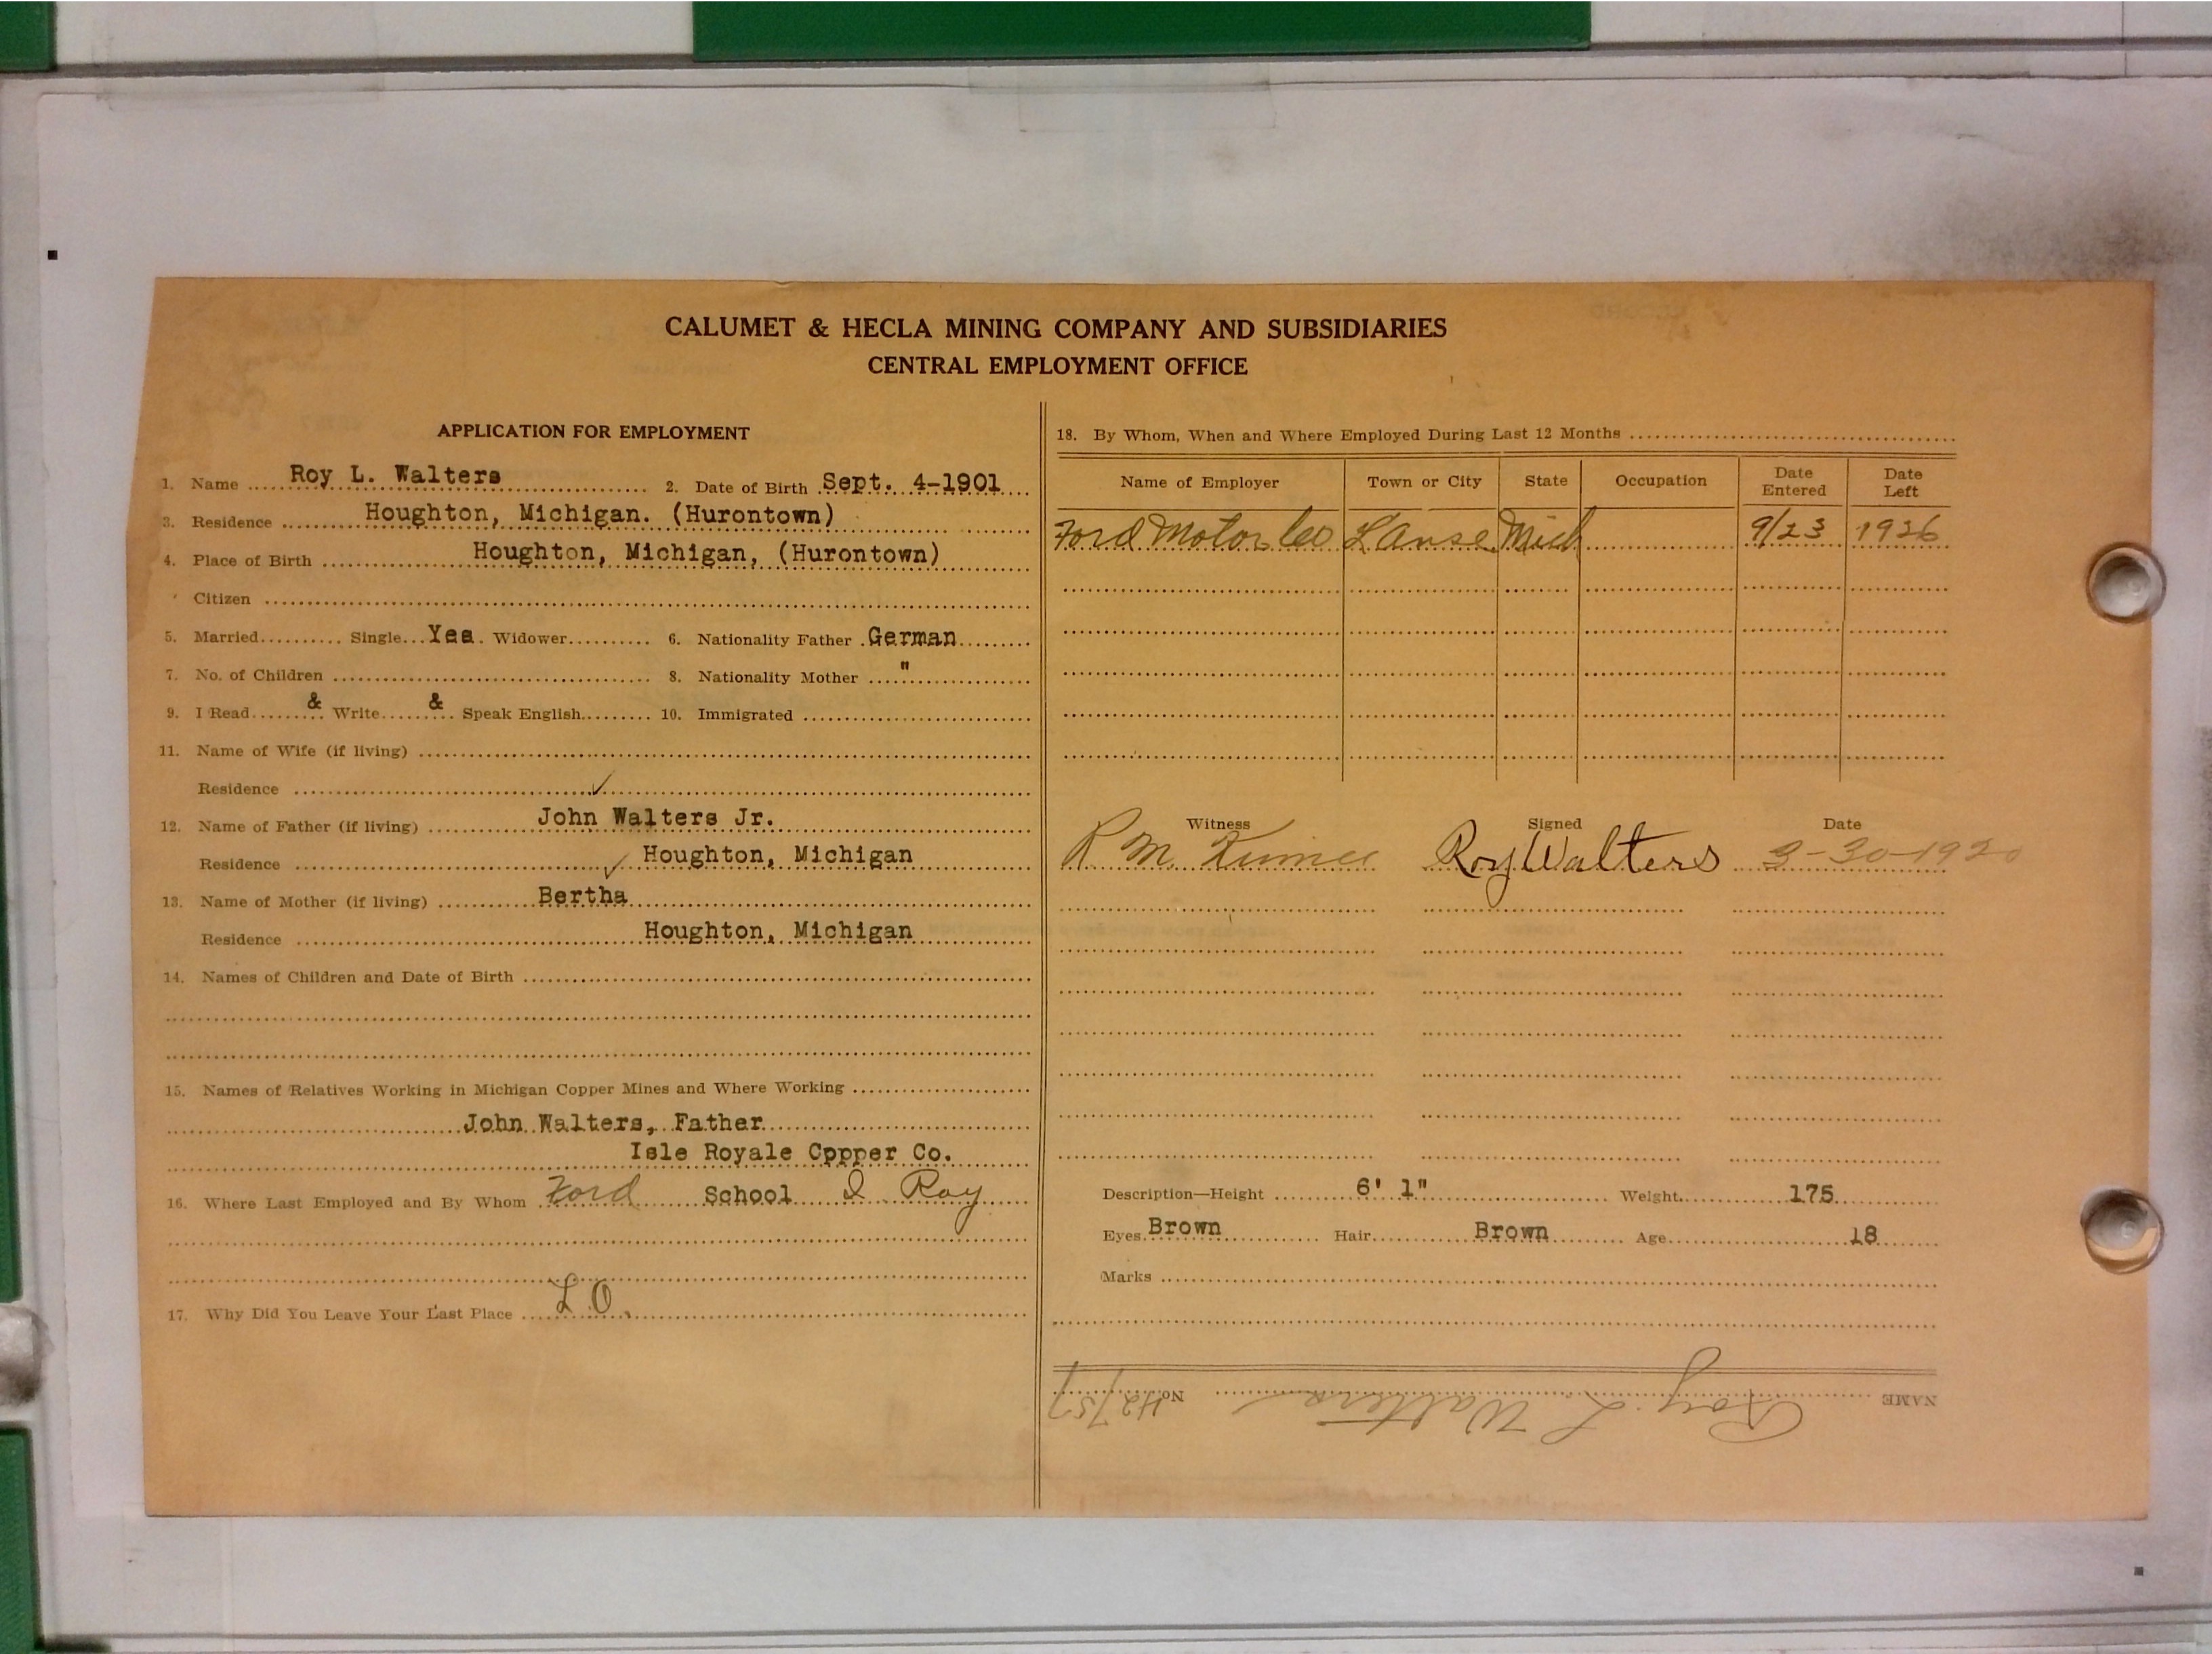 CALUMET & HECLA MINING COMPANY AND SUBSIDIARIES
CENTRAL EMPLOYMENT OFFICE
APPLICATION FOR EMPLOYMENT
1. Name Roy L. Walters 2. Date of Birth Sept. 4-1901
3. Residence Houghton, Michigan. (Hurontown)
4. Place of Birth Houghton, Michigan, (Hurontown)
Citizen
5. Married Single Yea Widower 6. Nationality Father German
7. No. of Children 8. Nationality Mother "
9. I Read & Write & Speak English 10. Immigrated
11. Name of Wife (if living)
Residence
12. Name of Father (if living) John Walters Jr.
Residence Houghton, Michigan
13. Name of Mother (if living) Bertha
Residence Houghton, Michigan
14. Names of Children and Date of Birth
15. Names of Relatives Working in Michigan Copper Mines and Where Working
John Walters, Father
Isle Royale Cppper Co.
16. Where Last Employed and By Whom Ford School I Roy
17. Why Did You Leave Your Last Place L.O.
18. By Whom, When and Where Employed During Last 12 Months
Name of Employer Town or City State Occupation Date Entered Date Left
Ford Motor Co L'Anse Mich 9/23 1926
Witness Signed Date
R. M. Roy Walters 3-30-1920
Description—Height 6' 1" Weight 175
Eyes Brown Hair Brown Age 18
Marks
NAME Roy L. Walters No. 42757